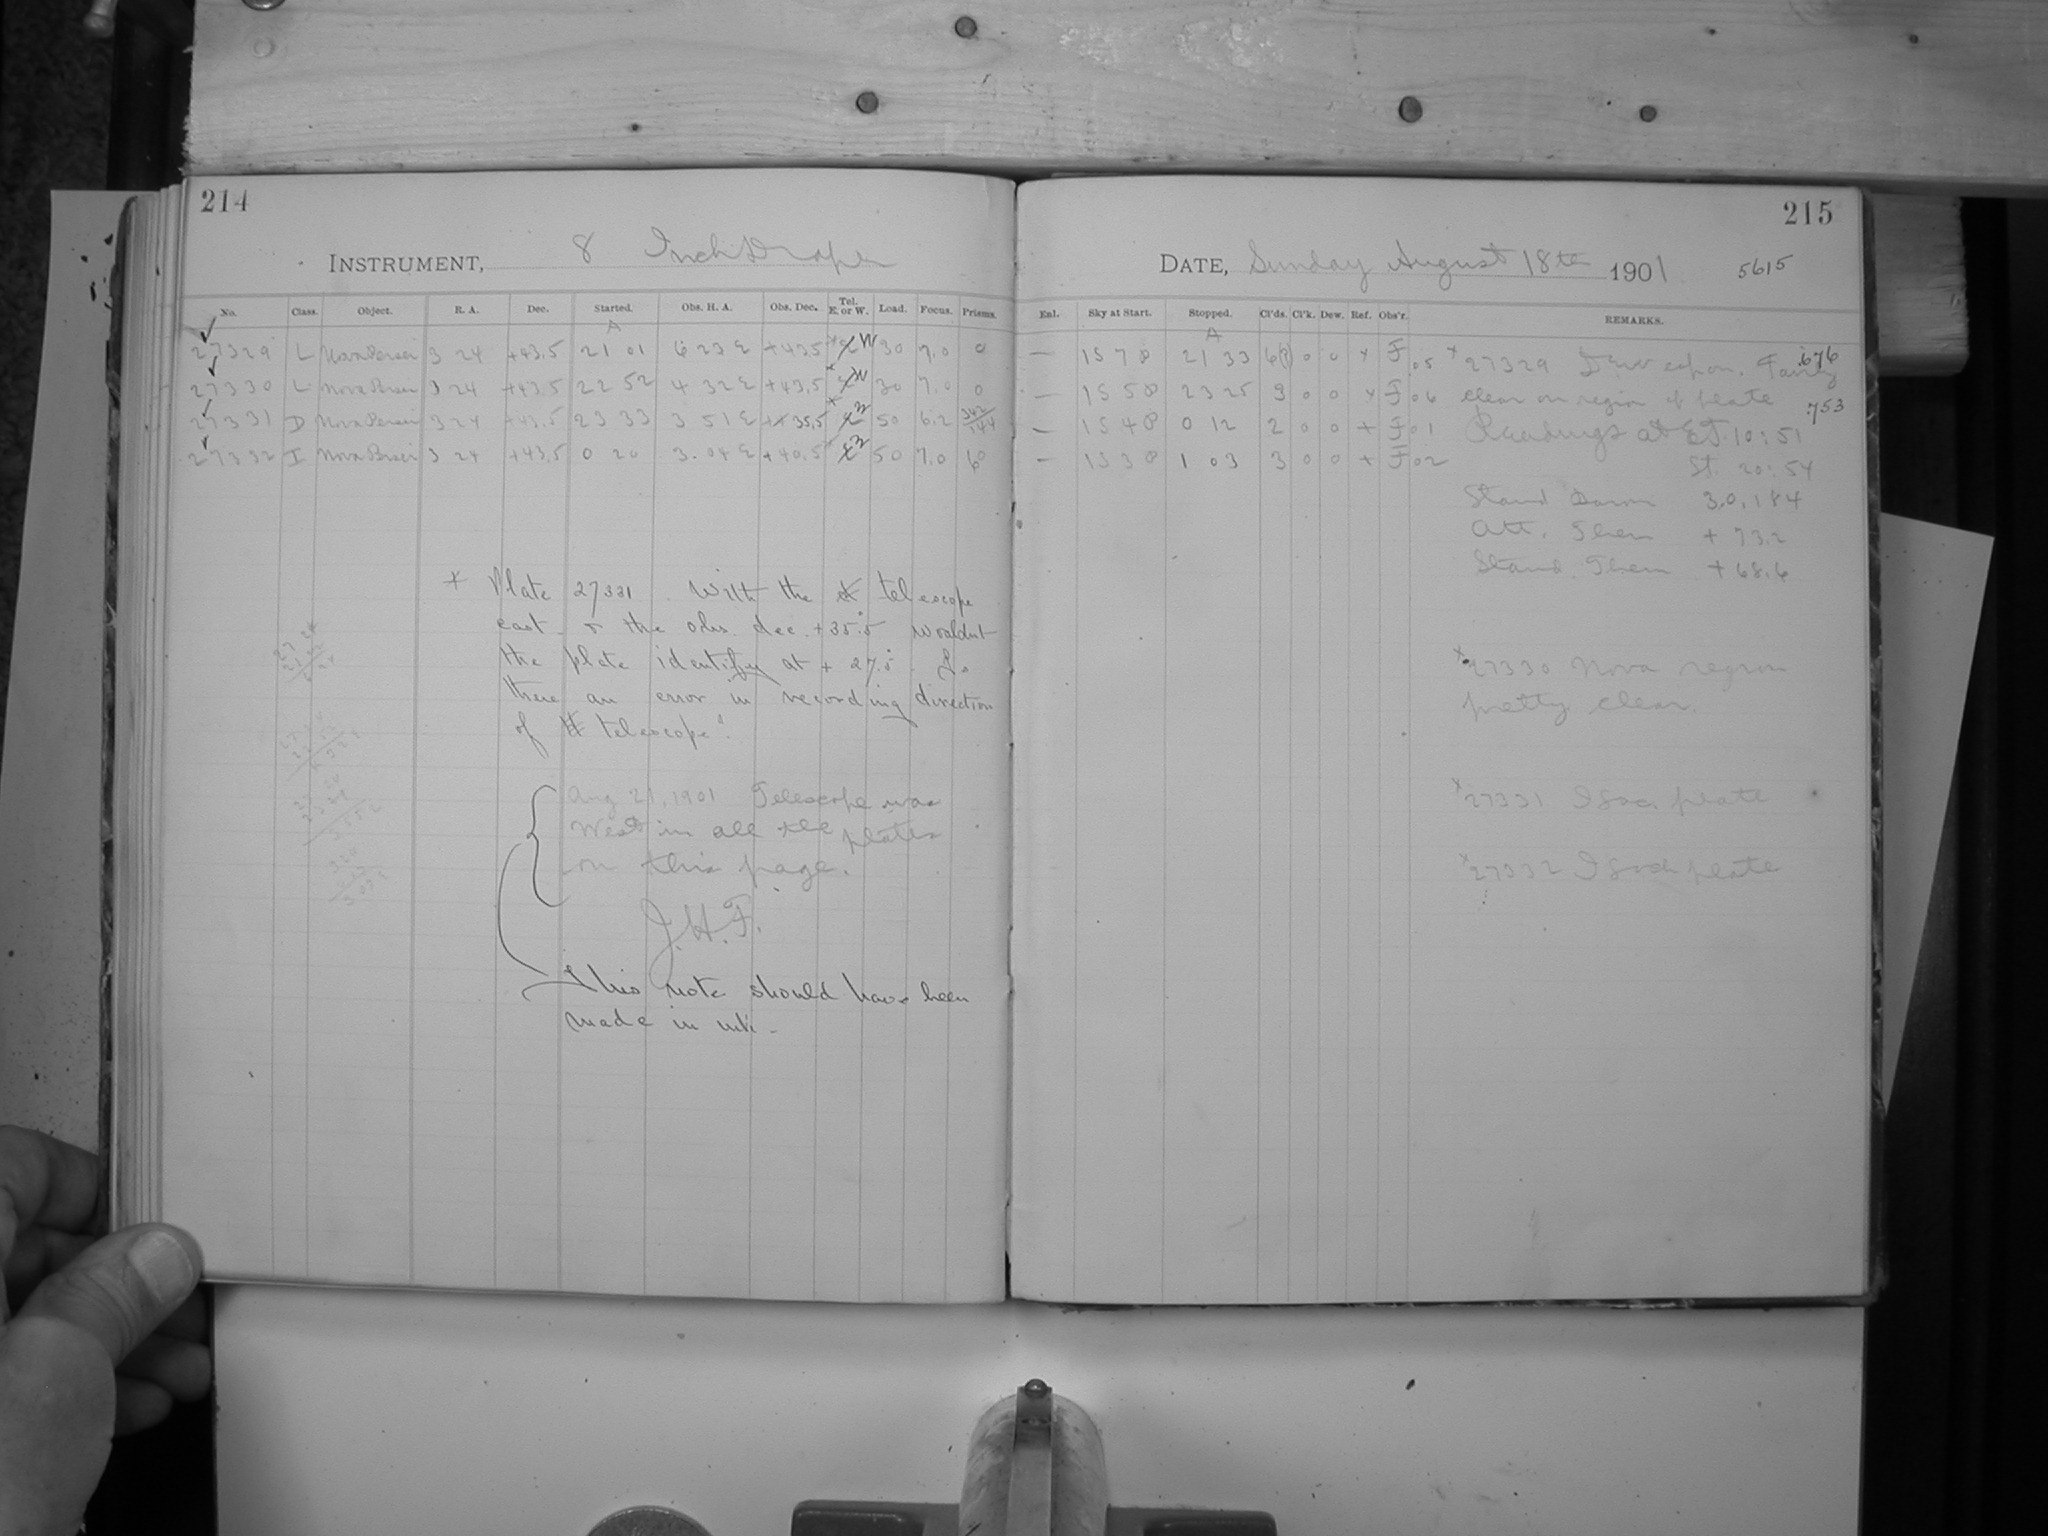 214
INSTRUMENT, 8 Inch Draper
No. Class. Object. R. A. Dec. Started. Obs. H. A. Obs. Dec. Tel. E. or W. Load. Focus. Prisms.
A
27329 L Nova Persei 3 24 +43.5 21 01 6 23 E +43.5 W 30 7.0 0
27330 L Nova Persei 3 24 +43.5 22 52 4 32 E +43.5 W 30 7.0 0
27331 D Nova Persei 3 24 +43.5 23 33 3 51 E +35.5 W 50 6.2
27332 I Nova Persei 3 24 +43.5 0 20 3.04 E +40.5 W 50 7.0 60
* Plate 27331. With the telescope
east & the obs. dec. +35.5 wouldn't
the plate identify at + 27.5. Is
there an error in recording direction
of telescope?
Aug 21, 1901 Telescope was
West in all the plates
on this page.
J.H.F.
This note should have been
made in ink.
215
DATE, Sunday August 18th 1901 5615
Enl. Sky at Start. Stopped. Cl'ds. Cl'k. Dew. Ref. Obs'r. REMARKS.
A
— 1578 21 33 6(?) 0 0 x F .05 * 27329 Dew cap on. Fairly .676
— 1558 23 25 3 0 0 x F 06 clear on region of plate .753
— 1548 0 12 2 0 0 + F 01 Readings at E.T. 10:51
— 1538 1 03 3 0 0 + F 02 St. 20:54
Stand Barom 30.184
Att. Them + 73.2
Stand. Them +68.6
* 27330 Nova region
pretty clear.
* 27331 Isoc. plate
* 27332 Isoch plate